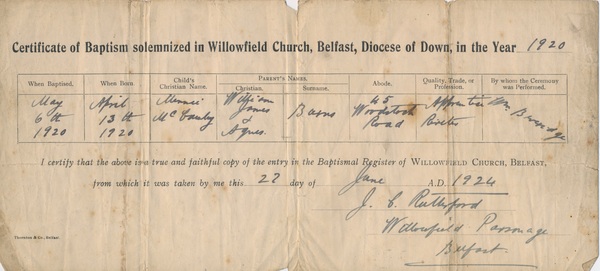 Certificate of Baptism solemnized in Willowfield Church, Belfast, Diocese of Down, in the Year 1920
When Baptised.
When Born
Child's Christian Name.
Parent's Names.
Christian.
Surname.
Abode.
Quality, Trade, or Profession.
By whom the Ceremony was Performed.
May 6th 1920
April 13th 1920
Minnie McCauley
William James & Agnes
Burns
45 Woodstock Road
Apprentice Riveter
Wm
I certify that the above is a true and faithful copy of the entry in the Baptismal Register of Willowfield Church, Belfast,
from which it was taken by me this 27 day of June A.D. 1924
J. C. Rutherford
Willowfield Parsonage
Belfast.